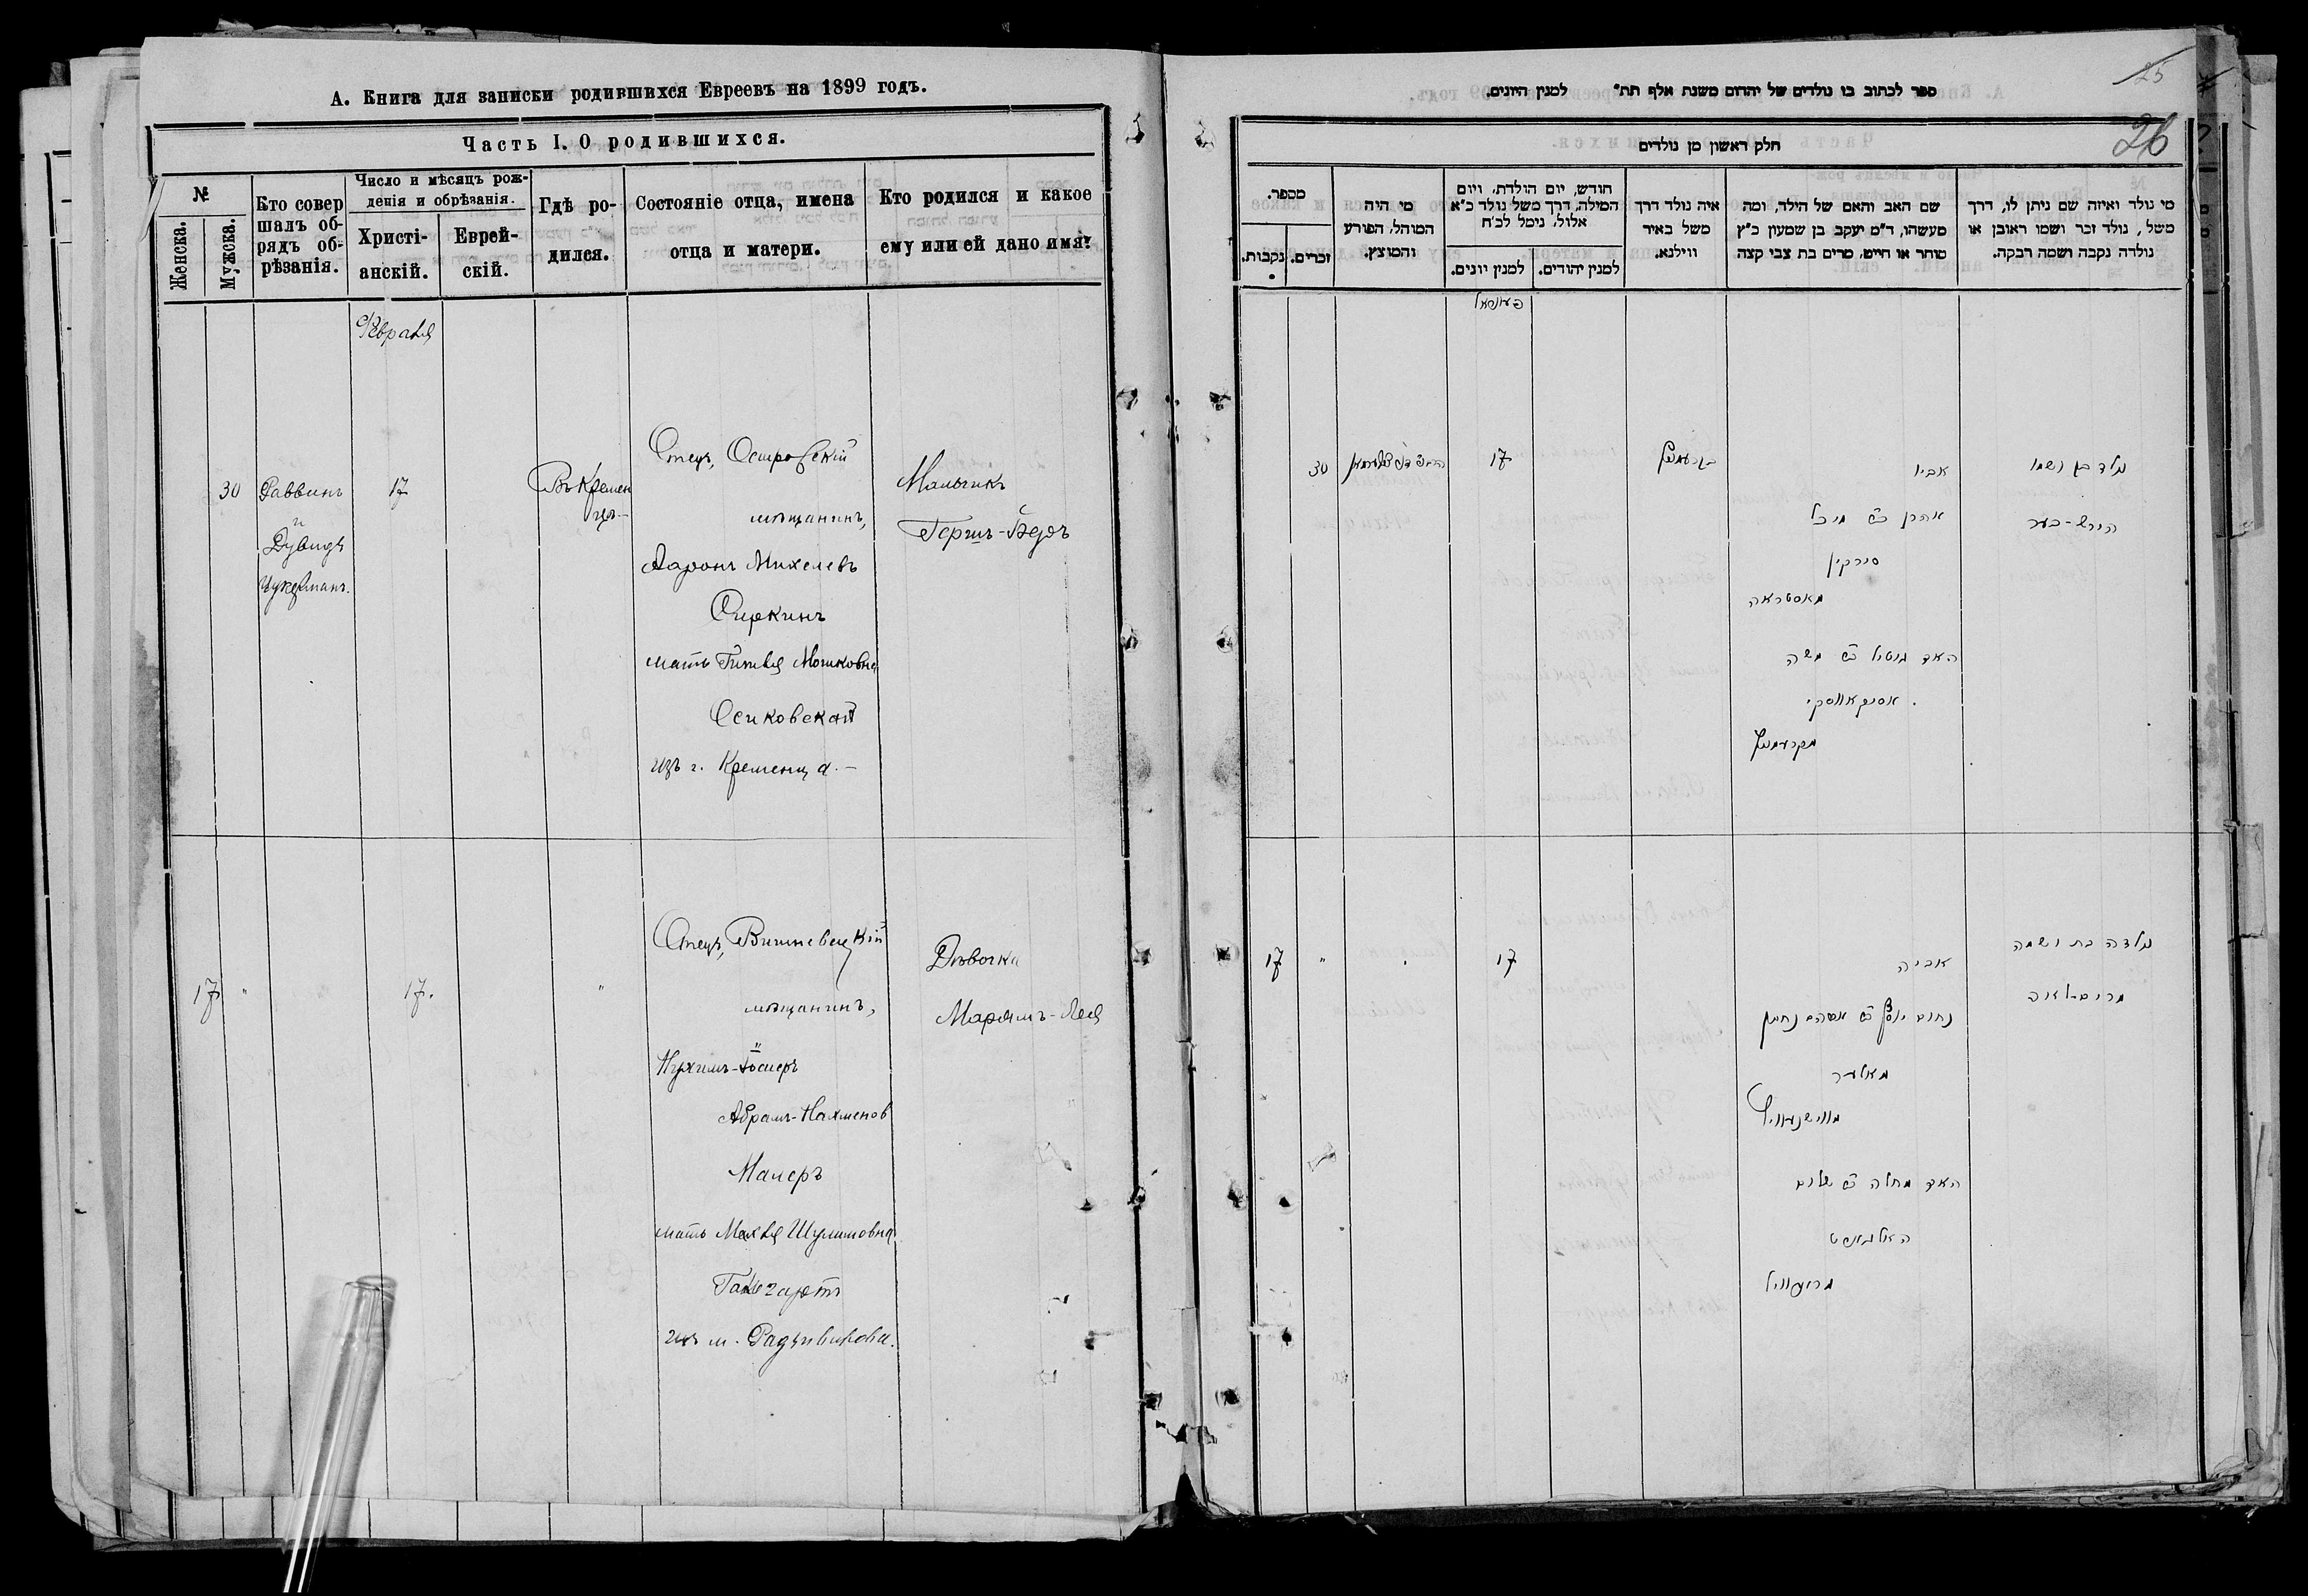 А. Книга для записки родившихся Евреевъ на 1899 годъ.
Часть I. О родившихся.
№
Женска.
Мужска.
Кто совер
шалъ об-
рядъ об-
рѣзанія.
Число и мѣсяцъ рож-
денія и обрѣзанія.
Христі-
анскій.
Еврей-
скій.
Гдѣ ро-
дился.
Состояніе отца, имена
отца и матери.
Кто родился и какое
ему или ей дано имя?
Февраля
30
Раввинъ
и
Дувидъ
Цукерманъ.
17
Въ Кремен
цѣ.-
Отецъ, Островскій
мѣщанинъ,
Ааронъ Михелевъ
Сиркинъ
мать Гителя Мошковна
Осиковская
изъ г. Кременца.-
Мальчикъ
Гершъ-Беръ
17
"
17.
"
Отецъ, Вишневецкій
мѣщанинъ,
Нухимъ-Іосифъ
Абрамъ-Нахменов
Малеръ
мать Махля Шулимовна
изъ м. Радзивилова.
Дѣвочка
Марямъ-Лея
25
26
ספר לכתוב בו נולדים של יהדום משנת אלף תת" למנין היונים.
חלק ראשון מן נולדים
מספר.
נקבות.
זכרים.
מי היה
המוהל, הפורע
והמוצץ.
חודש, יום הולדת, ויום
המילה, דרך משל נולד כ"א
אלול, נימל לכ"ח
למנין יונים.
למנין יהודים.
איה נולד דרך
משל באיר
ווילנא.
שם האב והאם של הילד, ומה
מעשהו, ד"מ יעקב בן שמעון כ"ץ
סוחר או חייט, מרים בת צבי קצה
מי נולד ואיזה שם ניתן לו, דרך
משל, נולד זכר ושמו ראובן או
נולדה נקבה ושמה רבקה.
30
17
קרעמניץ
אביו
אהרן ב"ר מיכל
סירקין
מאסטראה
האם גיטיל ב"ר משה
אסיקאווסקי
מקרעמניץ
נולד בן ושמו
הירש-בער
17
"
17
אביה
נחום יוסף ב"ר אברהם נחמן
מאלער
מווישנעוויץ
האם מחלה ב"ר שלום
נולדה בת ושמה
מרים-לאה